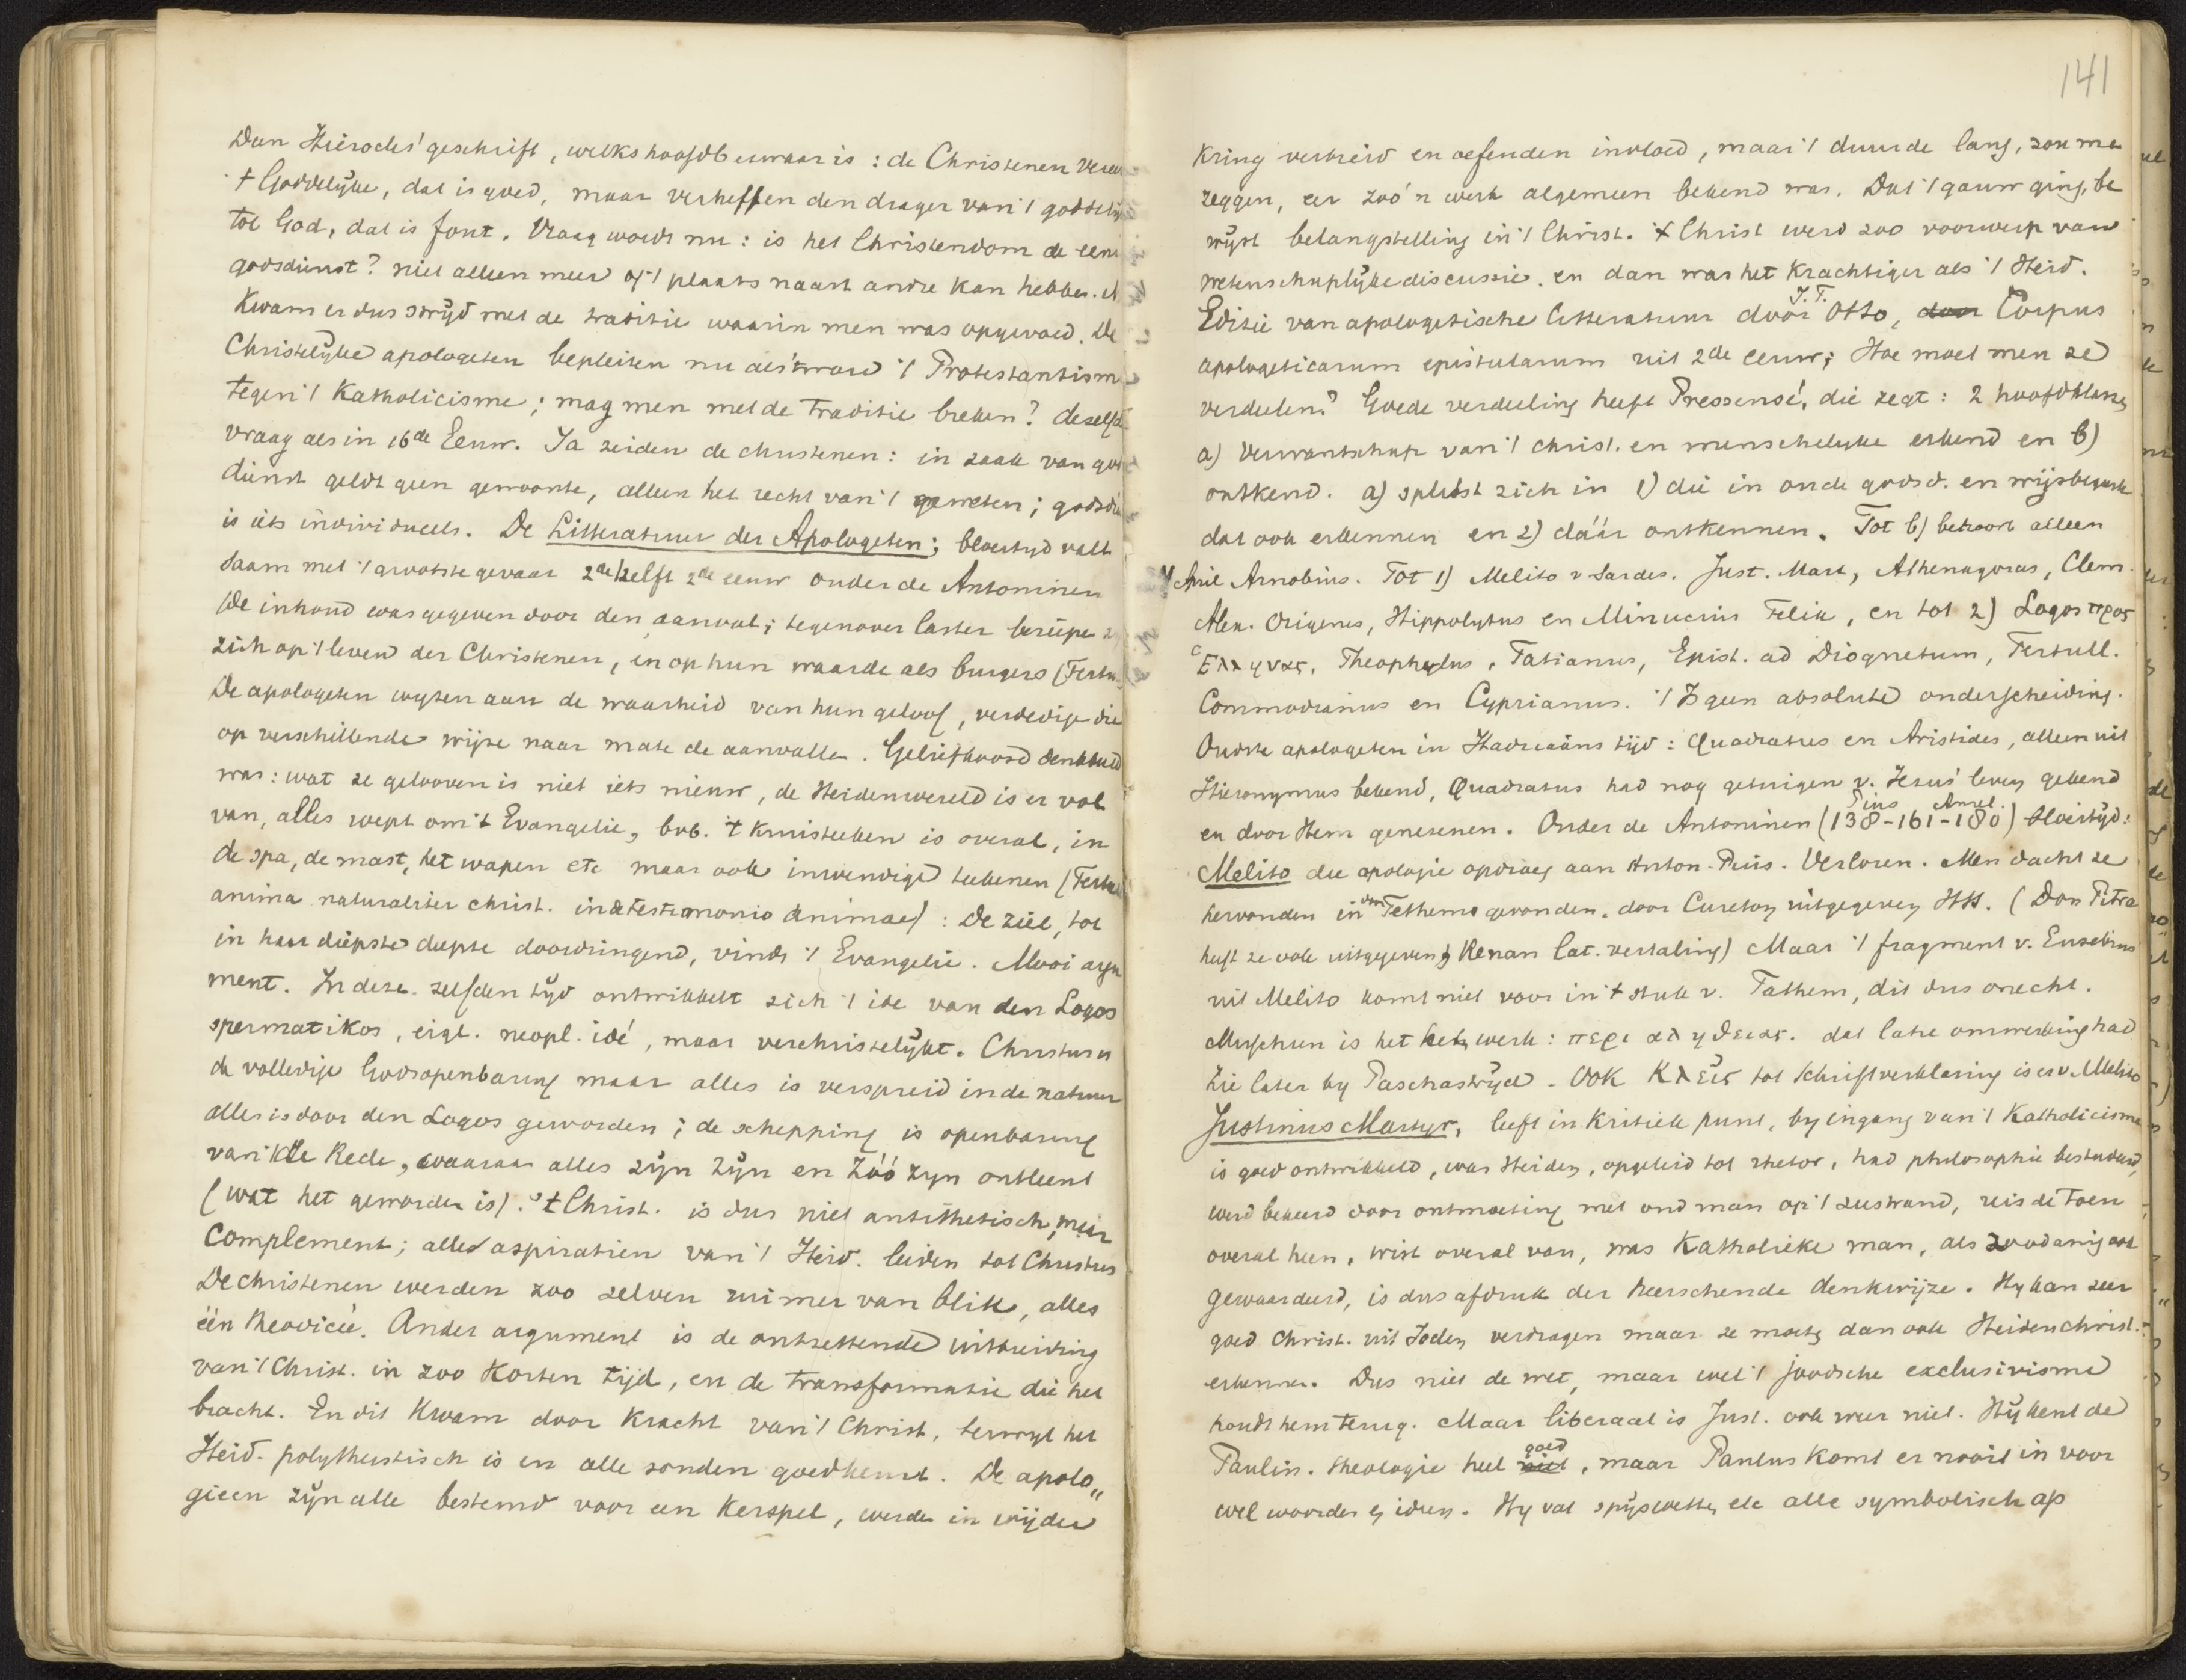 Dan Hierocles' geschrift, welks hoofdbezwaar is: de Christenen veree
't Goddelijke, dat is goed, maar verheffen den drager van 't goddelij
tot God, dat is fout. Vraag wordt nu: is het Christendom de eene
godsdienst? niet alleen meer of 't plaats naast andre kan hebben.
Kwam er dus strijd met de traditie waarin men was opgevoed. De
Christelijke apologeten bepleiten nu als 't ware 't Protestantism
tegen 't Katholicisme; mag men met de Traditie breken? dezelfde
vraag als in 16de Eeuw. Ja zeiden de christenen: in zaak van gods
dienst geldt geen gewoonte, alleen het recht van 't geweten; godsdie
is iets individueels. De Litteratuur der Apologeten; bloeityd valt
saam met 't grootste gevaar 2de helft 2de eeuw onder de Antoninen
De inhoud was gegeven door den aanval; tegenover laster beriepen
zich op 't leven der Christenen, en op hun waarde als burgers (Tertu.
De apologeten wyzen aan de waarheid van hun geloof, verdedige die
op verschillende wijze naar mate de aanvallen. Geliefkoosd denkbeeld
was: wat ze gelooven is niet iets nieuw, de Heidenwereld is er vol
van, alles roept om 't Evangelie, bvb. 't kruisteeken is overal, in
de spa, de mast, het wapen etc maar ook inwendige teekenen (Tertull
anima naturaliter christ. in de testimonio animae): De ziel, tot
in haar diepste diepte doordringend, vindt 't Evangelie. Mooi argu
ment. In deze zelfden tyd ontwikkelt zich 't ide van den Logos
spermatikos, eigl. neopl. idé, maar verchristelijkt. Christus is
de volledige Godsopenbaring maar alles is verspreid in de natuur
alles is door den Logos geworden; de schepping is openbaring
van de Rede, waaraan alles zijn zijn en zóó zyn ontleent
(wat het geworden is). 't Christ. is dus niet antithetisch, maar
Complement; alle aspiratien van 't Heid. leiden tot Christus
De christenen werden zoo zelven ruimer van blik, alles
één theodicée. Ander argument is de ontzettende uitbreiding
van 't Christ. in zoo korten tijd, en de transformatie die het
bracht. En dit kwam door kracht van 't Christ, terwyl het
Heid. polytheistisch is en alle zonden goedkeurt. De apolo„
gieen zijn alle bestemd voor een Kerspel, werden in wijder
141
kring verbreid en oefenden invloed, maar 't duurde lang, zou me
zeggen, eer zoo'n werk algemeen bekend was. Dat 't gauw ging, be
wijst belangstelling in 't Christ. 't Christ werd zoo voorwerp van
wetenschaplijke discussie en dan was het krachtiger als 't Heid.
Editie van apologetische litteratuur door J.T. Otto, door Corpus
apologeticarum epistularum uit 2de eeuw; Hoe moet men ze
verdeelen? Goede verdeeling heeft Pressensé, die zegt: 2 hoofdklassen
a) Verwantschap van 't christ. en menschelyke erkend en b)
ontkend. a) splitst zich in 1) die in oude godsd. en wijsbegeerte
dat ook erkennen en 2) dáár ontkennen. Tot b) behoort alleen
Arnobius. Tot 1) Melito v Sardes. Just. Mart, Athenagoras, Clem.
Alex. Origenes, Hippolytus en Minucius Felix, en tot 2) Logos προς
Ελληνας, Theophylus, Tatianus, Epist. ad Diognetum, Tertull.
Commodianus en Cyprianus. 't Is geen absolute onderscheiding.
Oudste apologeten in Hadriaäns tijd: Quadratus en Aristides, alleen uit
Hieronymus bekend, Quadratus had nog getuigen v. Jezus' leven gekend
en door Hem genezenen. Onder de Antoninen (138 - 161 - 180) bloeitijd:
Pius Aurel.
Melito die apologie opdroeg aan Anton. Pius. Verloren. Men dacht ze
hervonden in gevonden, door Cureton uitgegeven HS. (Dom Pitra
heeft ze ook uitgegeven, Renan lat. vertaling) Maar 't fragment v. Eusebius
uit Melito komt niet voor in 't stuk v. Tathem, dit dus onecht.
Misschien is het werk: περι αληθειας. dat latre omwerking had
Zie later by Paschastrijd. Ook Κλεις tot schriftverklaring is er v. Melito
Justinus Martyr, leeft in kritiek punt, by ingang van 't Katholicisme
is goed ontwikkeld, was Heiden, opgeleid tot rhetor, had philosophie bestudeerd,
werd bekeerd door ontmoeting met oud man op 't zeestrand, reisde toen
overal heen, wist overal van, was Katholieke man, als zoodanig ook
gewaardeerd, is dus afdruk der heerschende denkwijze. Hy kan zeer
goed Christ. uit Joden verdragen maar ze moeten dan ook Heidenchrist.
erkennen. Dus niet de wet, maar wel 't joodsche exclusivisme
houdt hem terug. Maar liberaal is Just. ook weer niet. Hij kent de
Paulin. theologie heel niet goed, maar Paulus komt er nooit in voor
wel woorden en ideen. Hy vat spijswetten etc alle symbolisch op